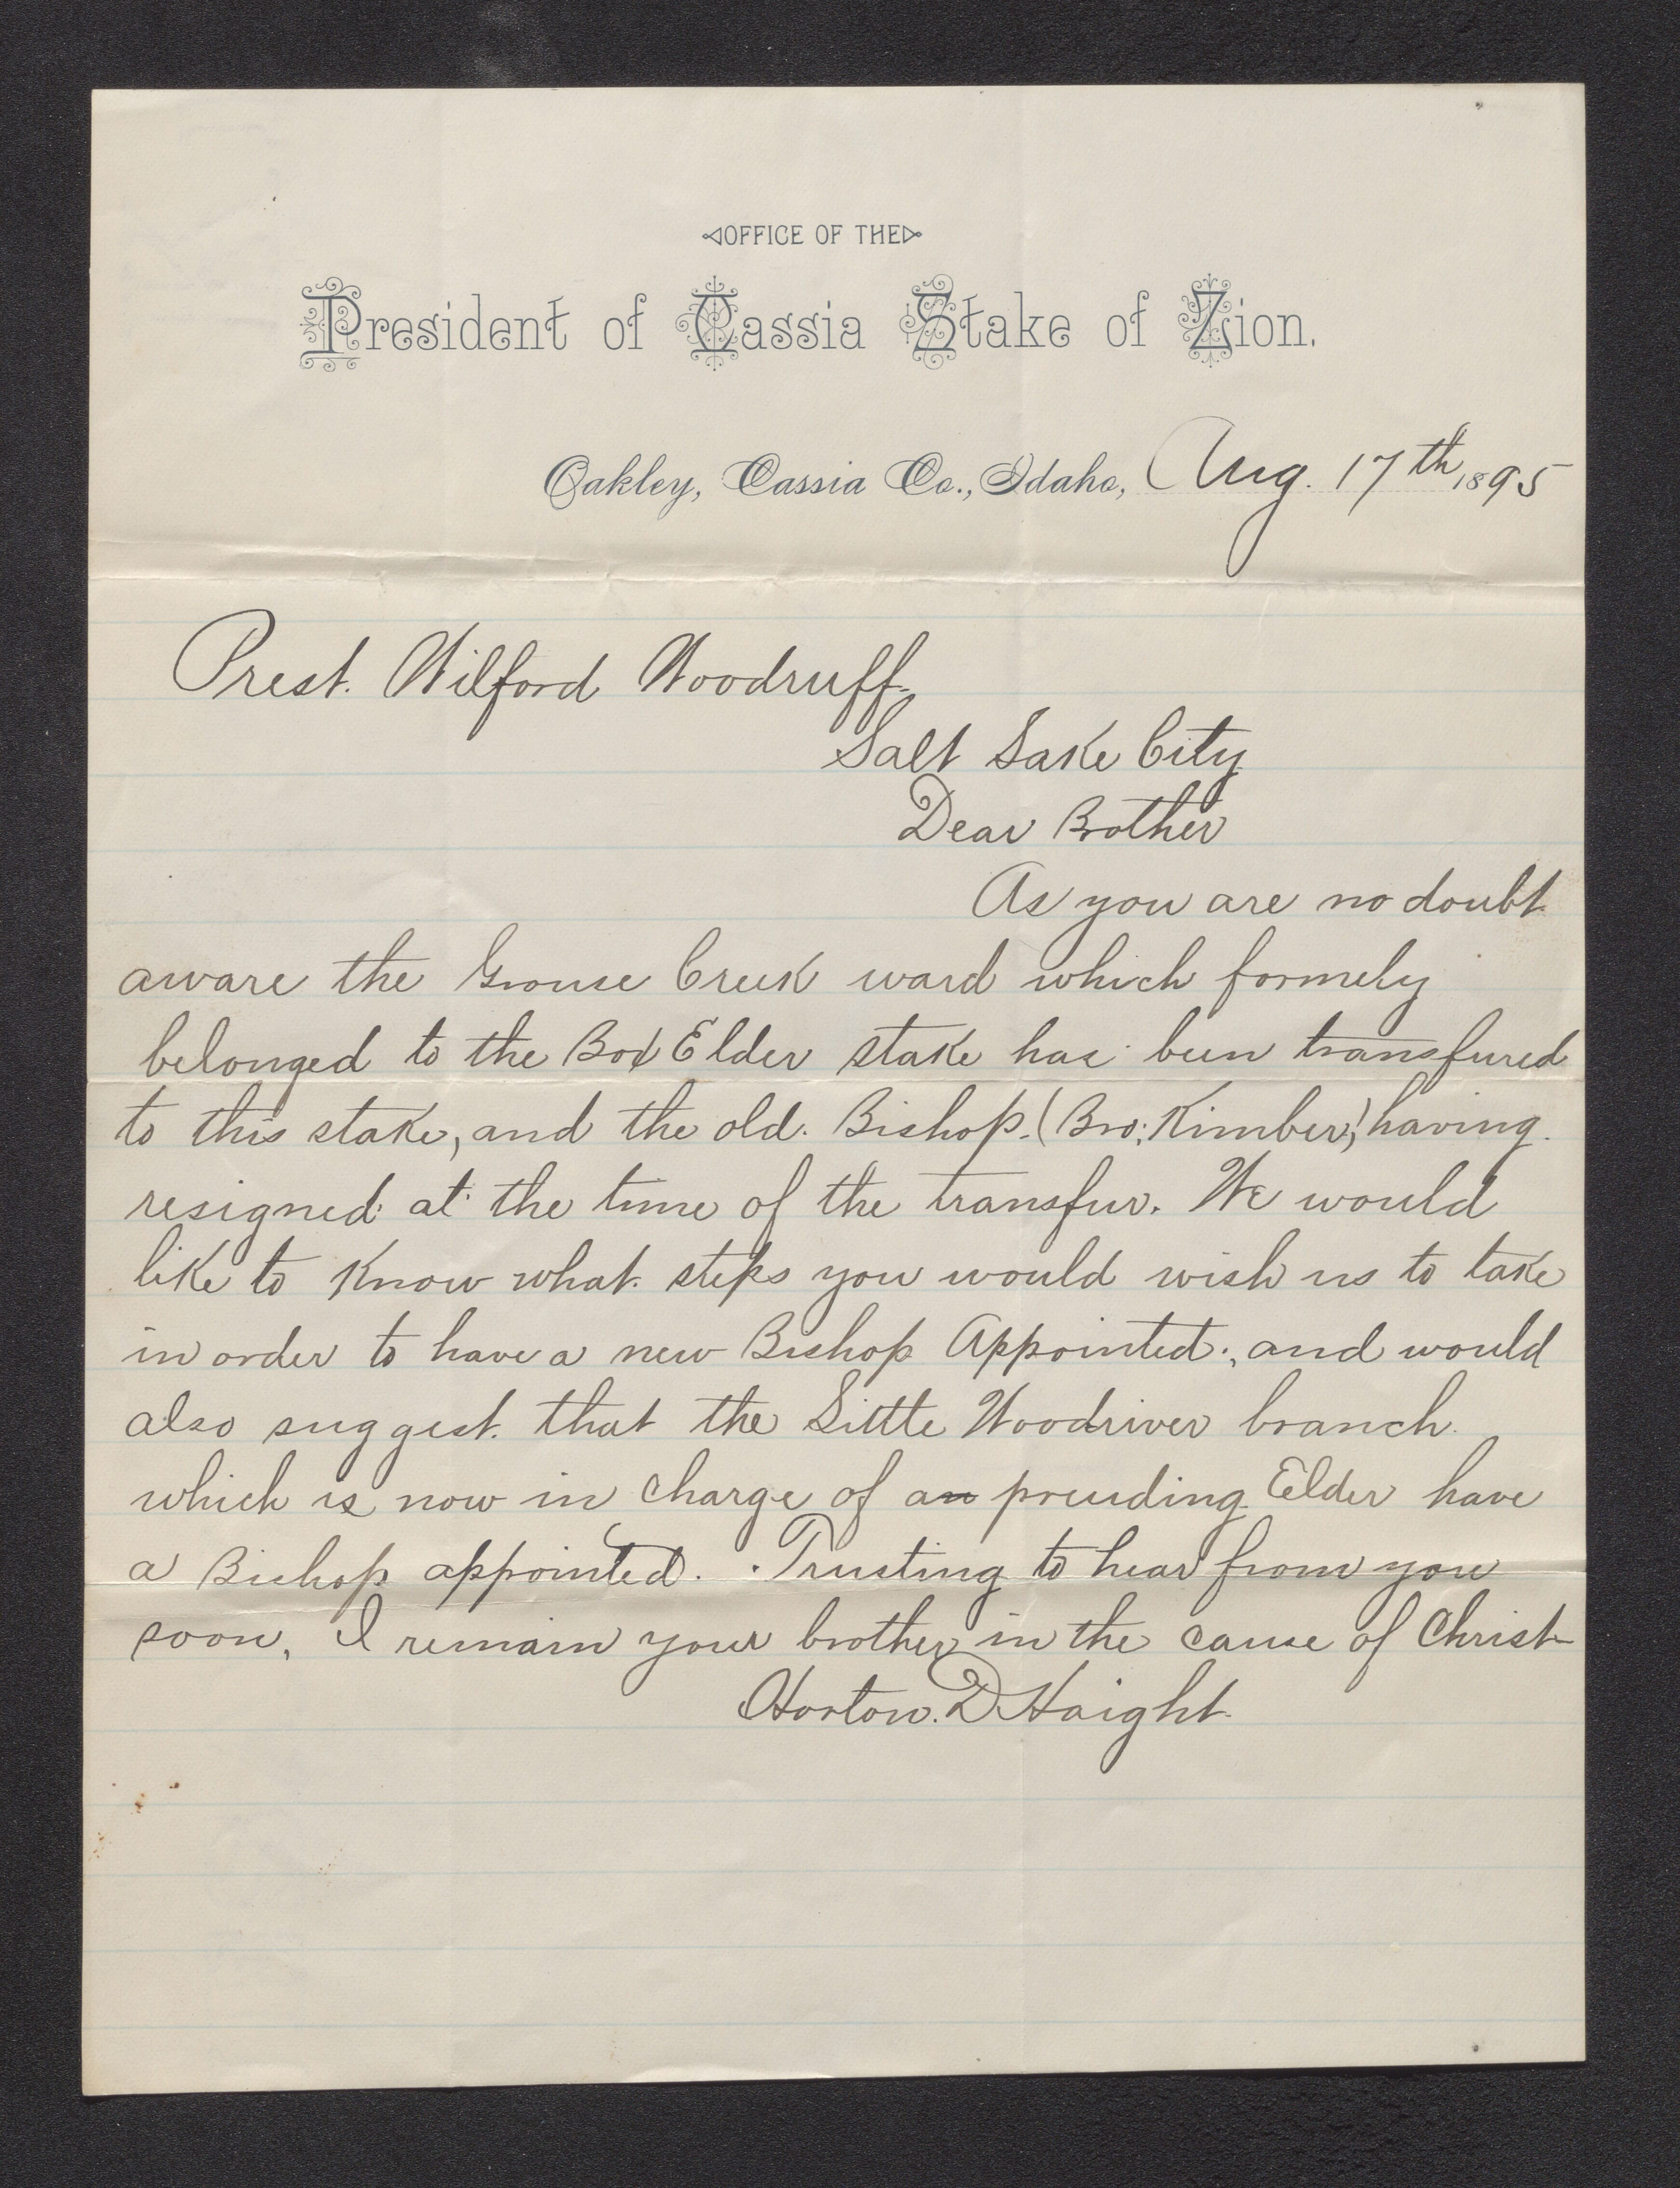 OFFICE OF THE
President of Cassia Stake of Zion.
Oakley, Cassia Co., Idaho, Aug. 17th, 1895
Prest. Wilford Woodruff.
Salt Lake City
Dear Brother
As you are no doubt
aware the Grouse Creek ward which formely
belonged to the Box Elder stake has been transfured
to this stake, and the old. Bishop. (Bro; Kimber,) having.
resigned at the time of the transfur. We would
like to know what. steps you would wish us to take
in order to have a new Bishop Appointed., and would
also suggest. that the Little Woodriver branch.
which is now in charge of an presiding Elder have
a Bishop appointed. Trusting to hear from you
soon, I remain your brother in the cause of Christ
Horton. D Haight.